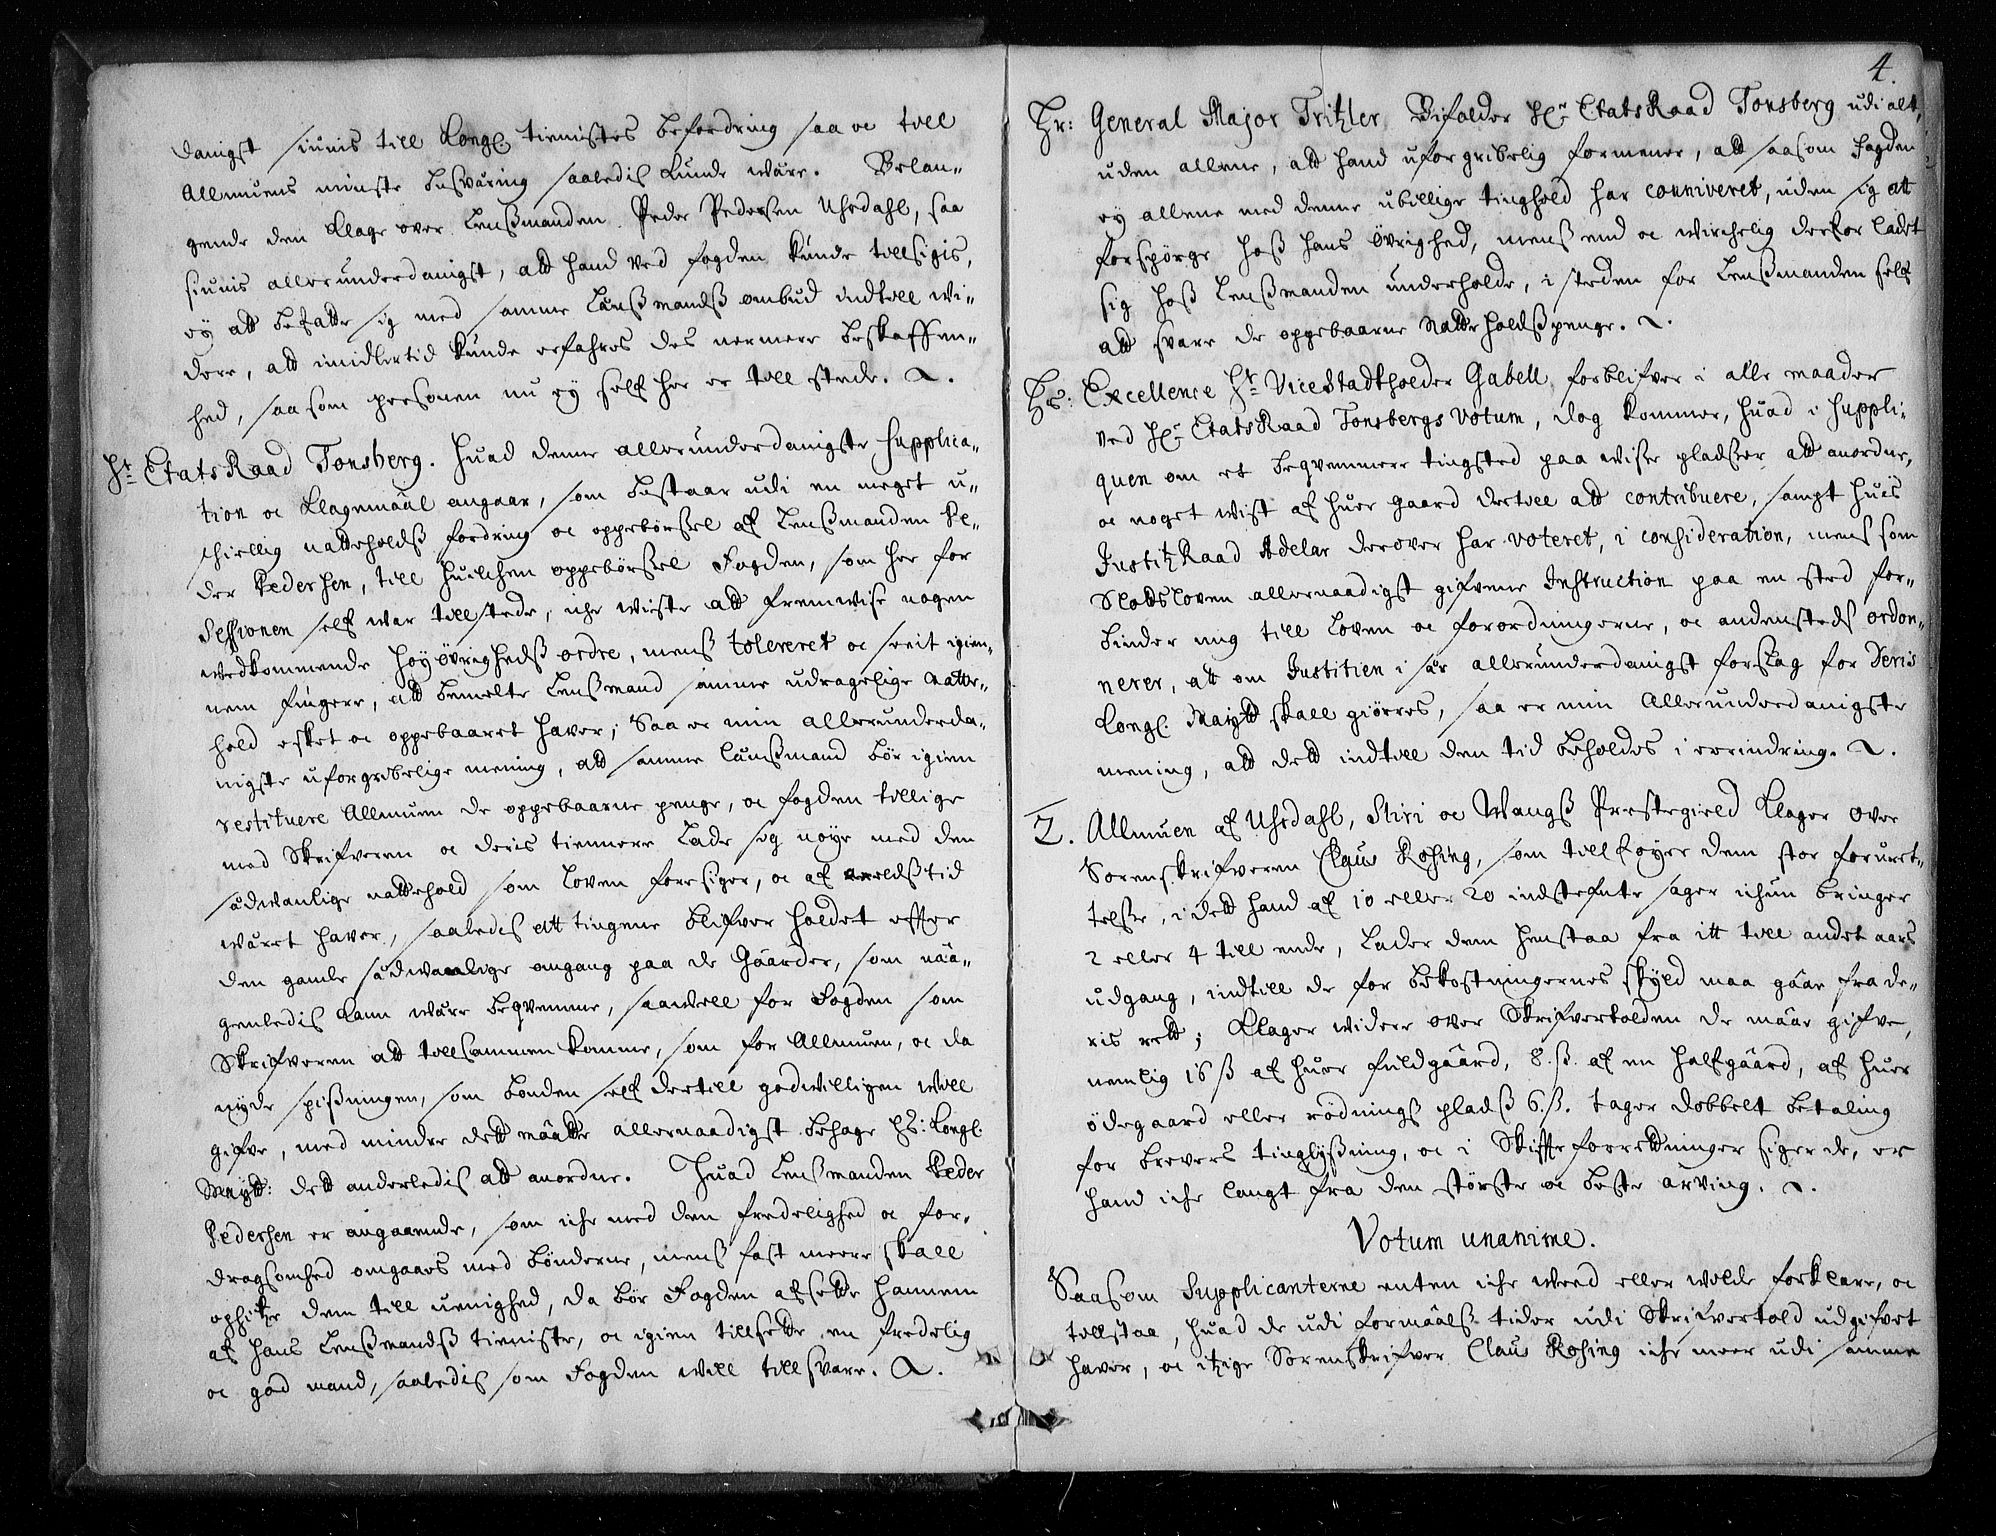 danigst siunis till Kongl tienistes befordring saa oc till
Allmuens minste besværing saaledis kunde være. Belan-
gende den Klage over Lensmanden Peder Pedersen Uhrdahl, saa
siunis allerunderdanigst, att hand ved fogden kunde tillsigis,
ey att befatte sig med samme Lænsmandss ombud indtill vi-
dere, att imidlertid kunde erfahres des nermere beskaffen-
hed, saasom personen nu ey self her er till stede. &.
Hr. EtatsRaad Tonsberg. Huad denne allerunderdanigste supplica-
tion oc klagemaal angaar, som bestaar udi en meget u-
schiellig natteholds fordring oc oppebørssel af Lensmanden Pe-
der Pedersen, till huilchen oppebørssel Fogden, som her for
Sessionen self war tillstede, iche wiste att fremwise nogen
wedkommende høyøvrighedss ordre, menss tolereret oc seeit igien-
nem fingere, att bemelte Lensmand samme udragelige natte-
hold esket oc oppebaaret haver; Saa er min allerunderda-
nigste uforgribelige mening, att samme lænsmand bør igien
restituere Allmuen de oppebaarne penge, oc fogden tillige
med Skrifveren oc deris tiennere lade sig nøye med den
sædwanlige nattehold som loven foresiger, oc af arildsstid
wæret haver, saaledis att tingene blifver holdet effter
den gamle sædwanlige omgang paa de Gaarder, som nøa-
genledis kann være beqvemme, saawell for Fogden som
Skrifveren att tillsammen komme, som for Allmuen, oc da
nyde spissningen, som bonden self dertill godwilligen will
gifve, med mindre dett maatte allernaadigst behage Hs: Kongl.
Maytt: dett anderledis att anordne. Huad Lensmanden Peder
Pedersen er angaaende, som iche med den fredelighed oc for-
dragsomhed omgaaes med bønderne, menss fast meere skall
ophitze dem till uenighed, da bør Fogden afsette hannem
af hans Lensmandss tieniste, oc igien tillsette en fredelig
oc god mand, saaledis som Fogden will tillsvare. &.
4.
Hr: General Major Tritzler Bifalder Hr. EtatsRaad Tonsberg udi alt,
uden allene, att hand uforgribelig formener, att saasom fogden
ey allene med denne ubillige tinghold har conniveret, uden sig att
forspørge hoss hans øvrighed, menss end oc wirchelig derfor ladet
sig hoss Lensmanden underholde, i steden for Lensmanden self
att svare de oppebaarne natteholdsspenge. &.
Hs: Excellence Hr. ViceStadtholder Gabell forblifver i alle maader
ved Hr. EtatsRaad Tonsbergs Votum, dog kommer, huad i Suppli-
quen om et beqvemmere tingsted paa wisse pladsser att anordne,
oc noget wist af huer gaard dertill att contribuere, sampt huis
JustitzRaad Adelar derover har voteret, i consideration, mens som
Slotsloven allernaadigst gifvene Instruction paa en sted for-
binder mig till loven oc forordningerne, oc andensteds ordon-
nerer, att om Justitien i sær allerunderdanigst forslag for Deris
Kongl. Maytt skall giøres, saa er min Allerunderdanigste
mening, att dett indtill den tid beholdes i erindring. &.
2. Allmuen af Uhrdahl, Stiri oc Wangss Prestegield klager over
Sorenskrifveren Claus Rosing, som tillføyer dem stor foruret-
telsse, i dett hand af 10 eller 20 indstefnte sager ichun bringer
2 eller 4 till ende, lader dem henstaa fra itt till andet aars
udgang, indtill de for bekostningernes skyld maa gaae fra de-
ris rett; Klager videre over Skrifvertolden de maae gifve,
nemlig 16 ss af huer fuldgaard, 8. ss. af en halfgaard, af huer
ødegaard eller rødnings pladss 6. ss. tager dobbelt betaling
for brevers tinglyssning, oc i Skiffteforretninger siger de, er
hand iche langt fra den største oc beste arving. &.
Votum unanime.
Saasom Supplicanterne enten iche weed eller wilde forklare, oc
tillstaa, huad de udi formaalss tider udi Skrifvertold udgifvet
haver, oc itzige Sorenskrifver Claus Rosing iche meer udi samme